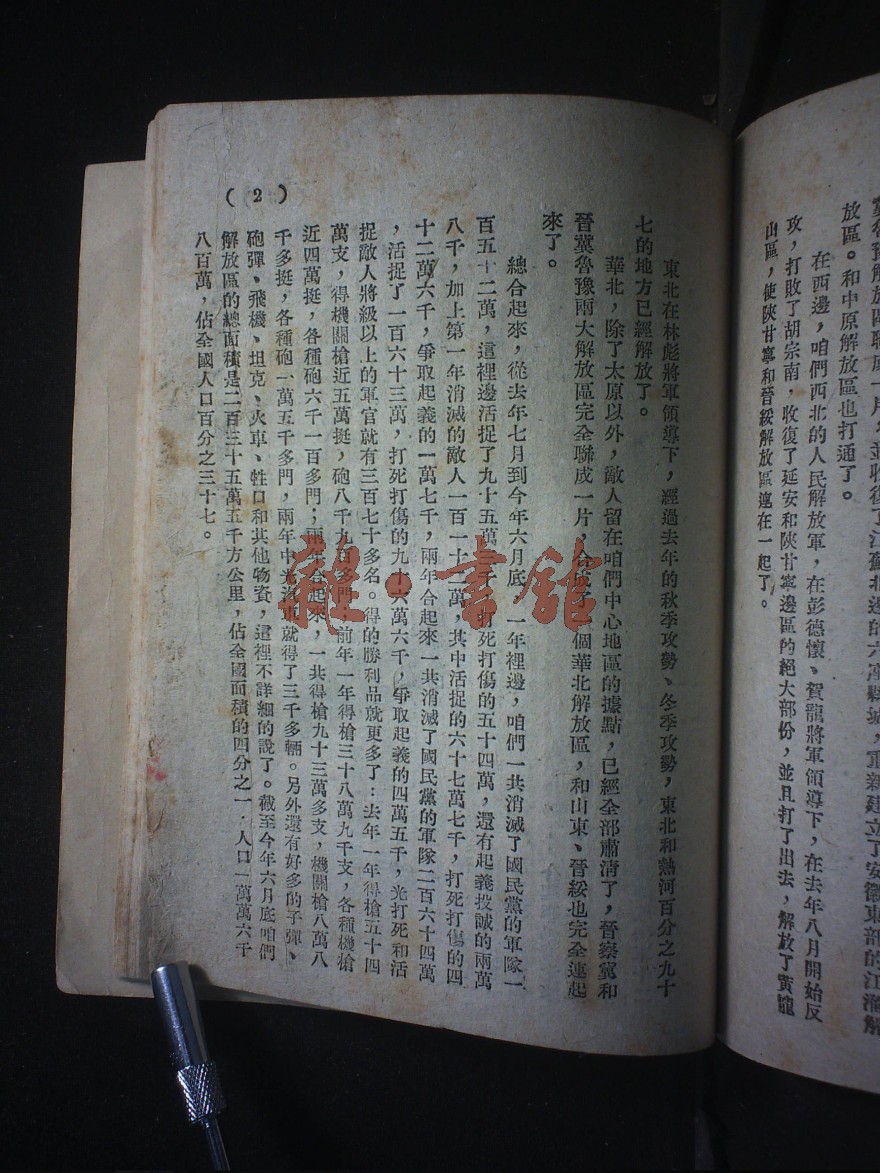 冀魯豫解放區聯成一片，並收復了江蘇北邊的六萬縣城，重新建立了安徽東部的江淮解
放區。和中原解放區也打通了。
在西邊，咱們西北的人民解放軍，在彭德懷、賀龍將軍領導下，在去年八月開始反
攻，打敗了胡宗南，收復了延安和陝甘寧邊區的絕大部份，並且打了出去，解放了黃龍
山區，使陝甘寧和晉綏解放區連在一起了。
東北在林彪將軍領導下，經過去年的秋季攻勢、冬季攻勢，東北和熱河百分之九十
七的地方已經解放了。
華北，除了太原以外，敵人留在咱們中心地區的據點，已經全部肅清了，晉察冀和
晉冀魯豫兩大解放區完全聯成一片，合成了一個華北解放區，和山東、晉綏也完全連起
來了。
總合起來，從去年七月到今年六月底，一年裡邊，咱們一共消滅了國民黨的軍隊一
百五十二萬，這裡邊活捉了九十五萬三千，打死打傷的五十四萬，還有起義投誠的兩萬
八千，加上第一年消滅的敵人一百一十二萬，其中活捉的六十七萬七千，打死打傷的四
十二萬六千，爭取起義的一萬七千，兩年合起來一共消滅了國民黨的軍隊二百六十四萬
，活捉了一百六十三萬，打死打傷的九十六萬六千，爭取起義的四萬五千，光打死和活
捉敵人將級以上的軍官就有三百七十多名。得的勝利品就更多了：去年一年得槍五十四
萬支，得機關槍近五萬挺，砲八千九百多門，前年一年得槍三十八萬九千支，各種機槍
近四萬挺，各種砲六千一百多門；兩年合起來，一共得槍九十三萬多支，機關槍八萬八
千多挺，各種砲一萬五千多門，兩年中光汽車就得了三千多輛。另外還有好多的子彈、
砲彈、飛機、坦克、火車、牲口和其他物資，這裡不詳細的說了。截至今年六月底咱們
解放區的總面積是二百三十五萬五千方公里，佔全國面積的四分之一，人口一萬萬六千
八百萬，佔全國人口百分之三十七。
（2）
雜·書館